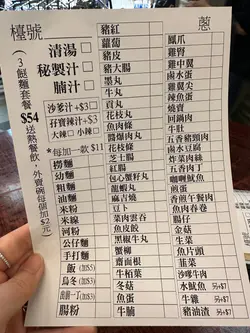 檯號
(3餸麵套餐 $54 送熱餐飲，外賣碗每個加2元)
清湯 □
秘製汁 □
腩汁 □
沙爹汁+$3 □
孖寶辣汁+$3 □
大辣□ 小辣□
*每加一款$11
撈麵
幼麵
粗麵
油麵
米粉
米線
河粉
公仔麵
手打麵
飯
烏冬
腸粉
豬紅
蘿蔔
豬皮
豬大腸
墨丸
牛丸
貢丸
魚肉條
醬爆肉丸
花枝丸
芝士腸
紅腸
包心蟹籽丸
龍蝦丸
麻吉燒
豆卜
菜肉雲吞
魚皮餃
黑椒牛丸
蟹柳
齋面根
牛柏葉
冬菇
魚蛋
牛腩
蔥
鳳爪
雞腎
雞中翼
鹵水蛋
雞翼尖
辣魚蛋
燒賣
回鍋肉
牛肚
五香豬頸肉
鹵水豆腐
炸菜肉絲
五香肉丁
咖喱魷魚
煎蛋
香煎午餐肉
魚肉春卷
腸仔
金菇
生菜
魚片頭
韮菜
沙嗲牛肉
水魷魚
牛雜
豬油渣